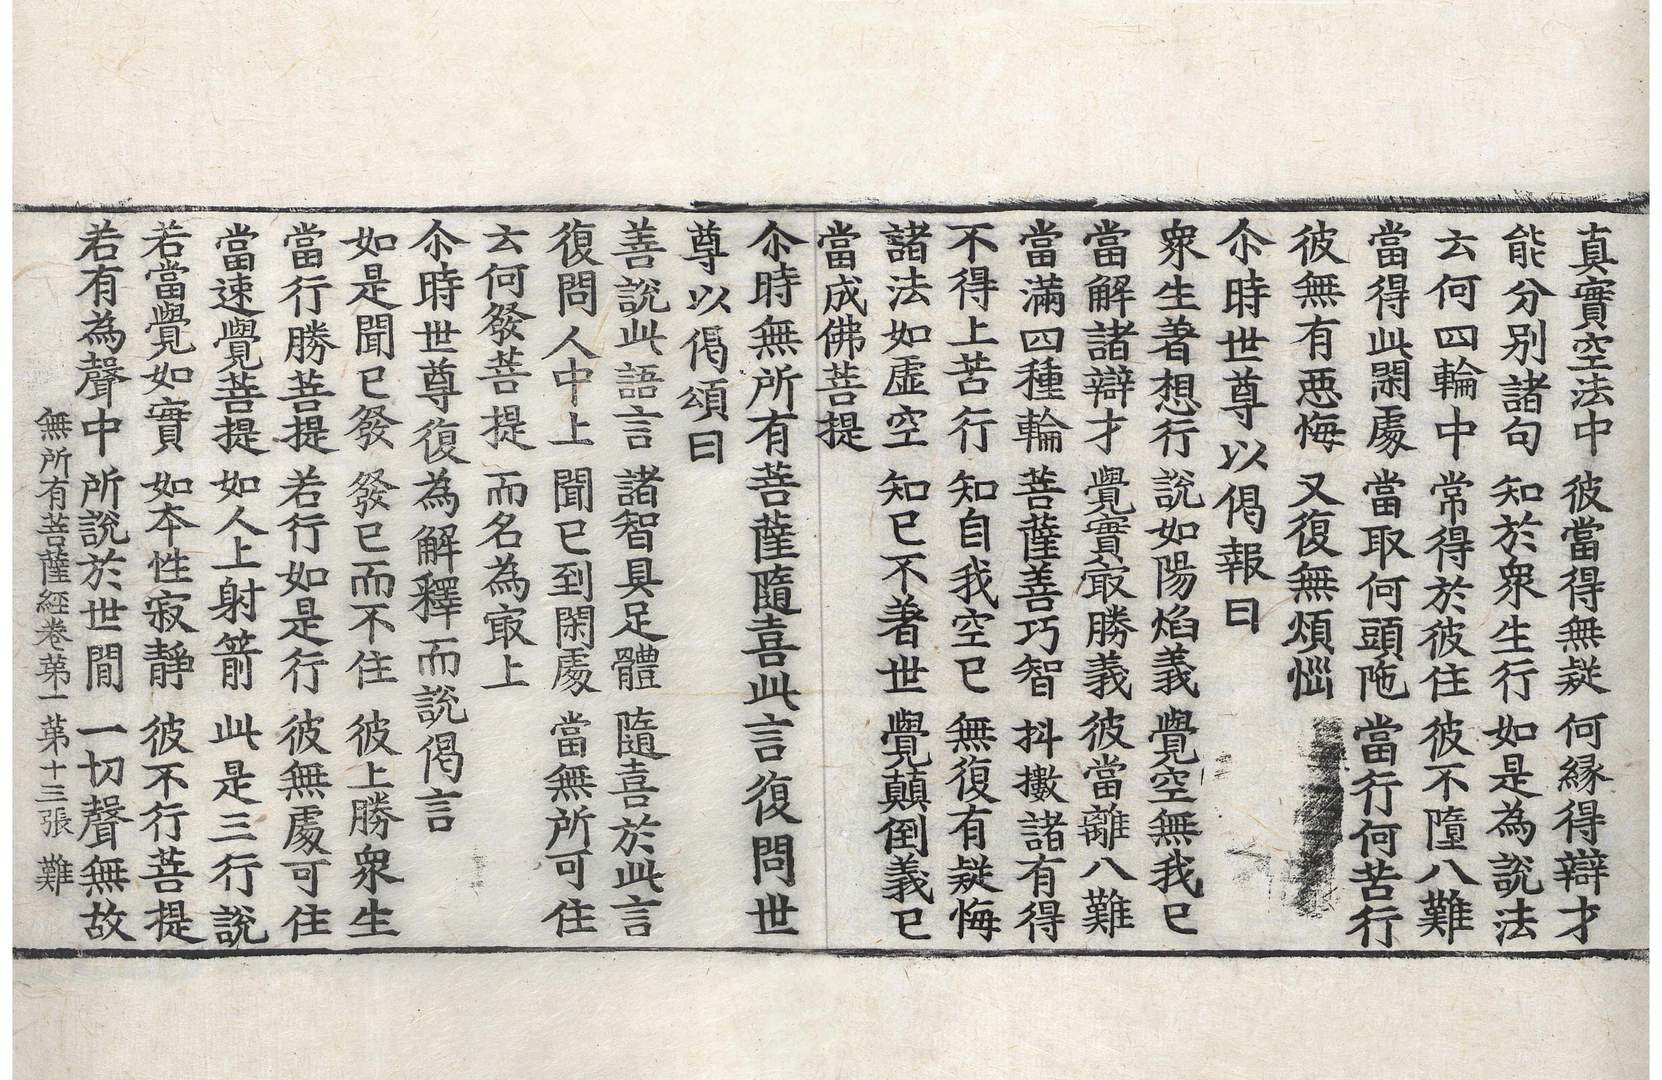 真實空法中 彼當得無疑 何緣得辯才
能分别諸句 知於衆生行 如是為說法
云何四輪中 常得於彼住 彼不墮八難
當得此閑處 當取何頭陁 當行何苦行
彼無有惡悔 又復無煩惱
尒時世尊以偈報曰
衆生著想行 說如陽焰義 覺空無我已
當解諸辯才 覺實㝡勝義 彼當離八難
當滿四種輪 菩薩善巧智 抖擻諸有得
不得上苦行 知自我空已 無復有疑悔
諸法如虛空 知已不著世 覺顛倒義已
當成佛菩提
尒時無所有菩薩隨喜此言復問世
尊以偈頌曰
善說此語言 諸智具足體 隨喜於此言
復問人中上 聞已到閑處 當無所可住
云何發菩提 而名為㝡上
尒時世尊復為解釋而說偈言
如是聞已發 發已而不住 彼上勝衆生
當行勝菩提 若行如是行 彼無處可住
當速覺菩提 如人上射箭 此是三行說
若當覺如實 如本性寂靜 彼不行菩提
若有為聲中 所說於世間 一切聲無故
無所有菩薩經卷第一 第十三張 難